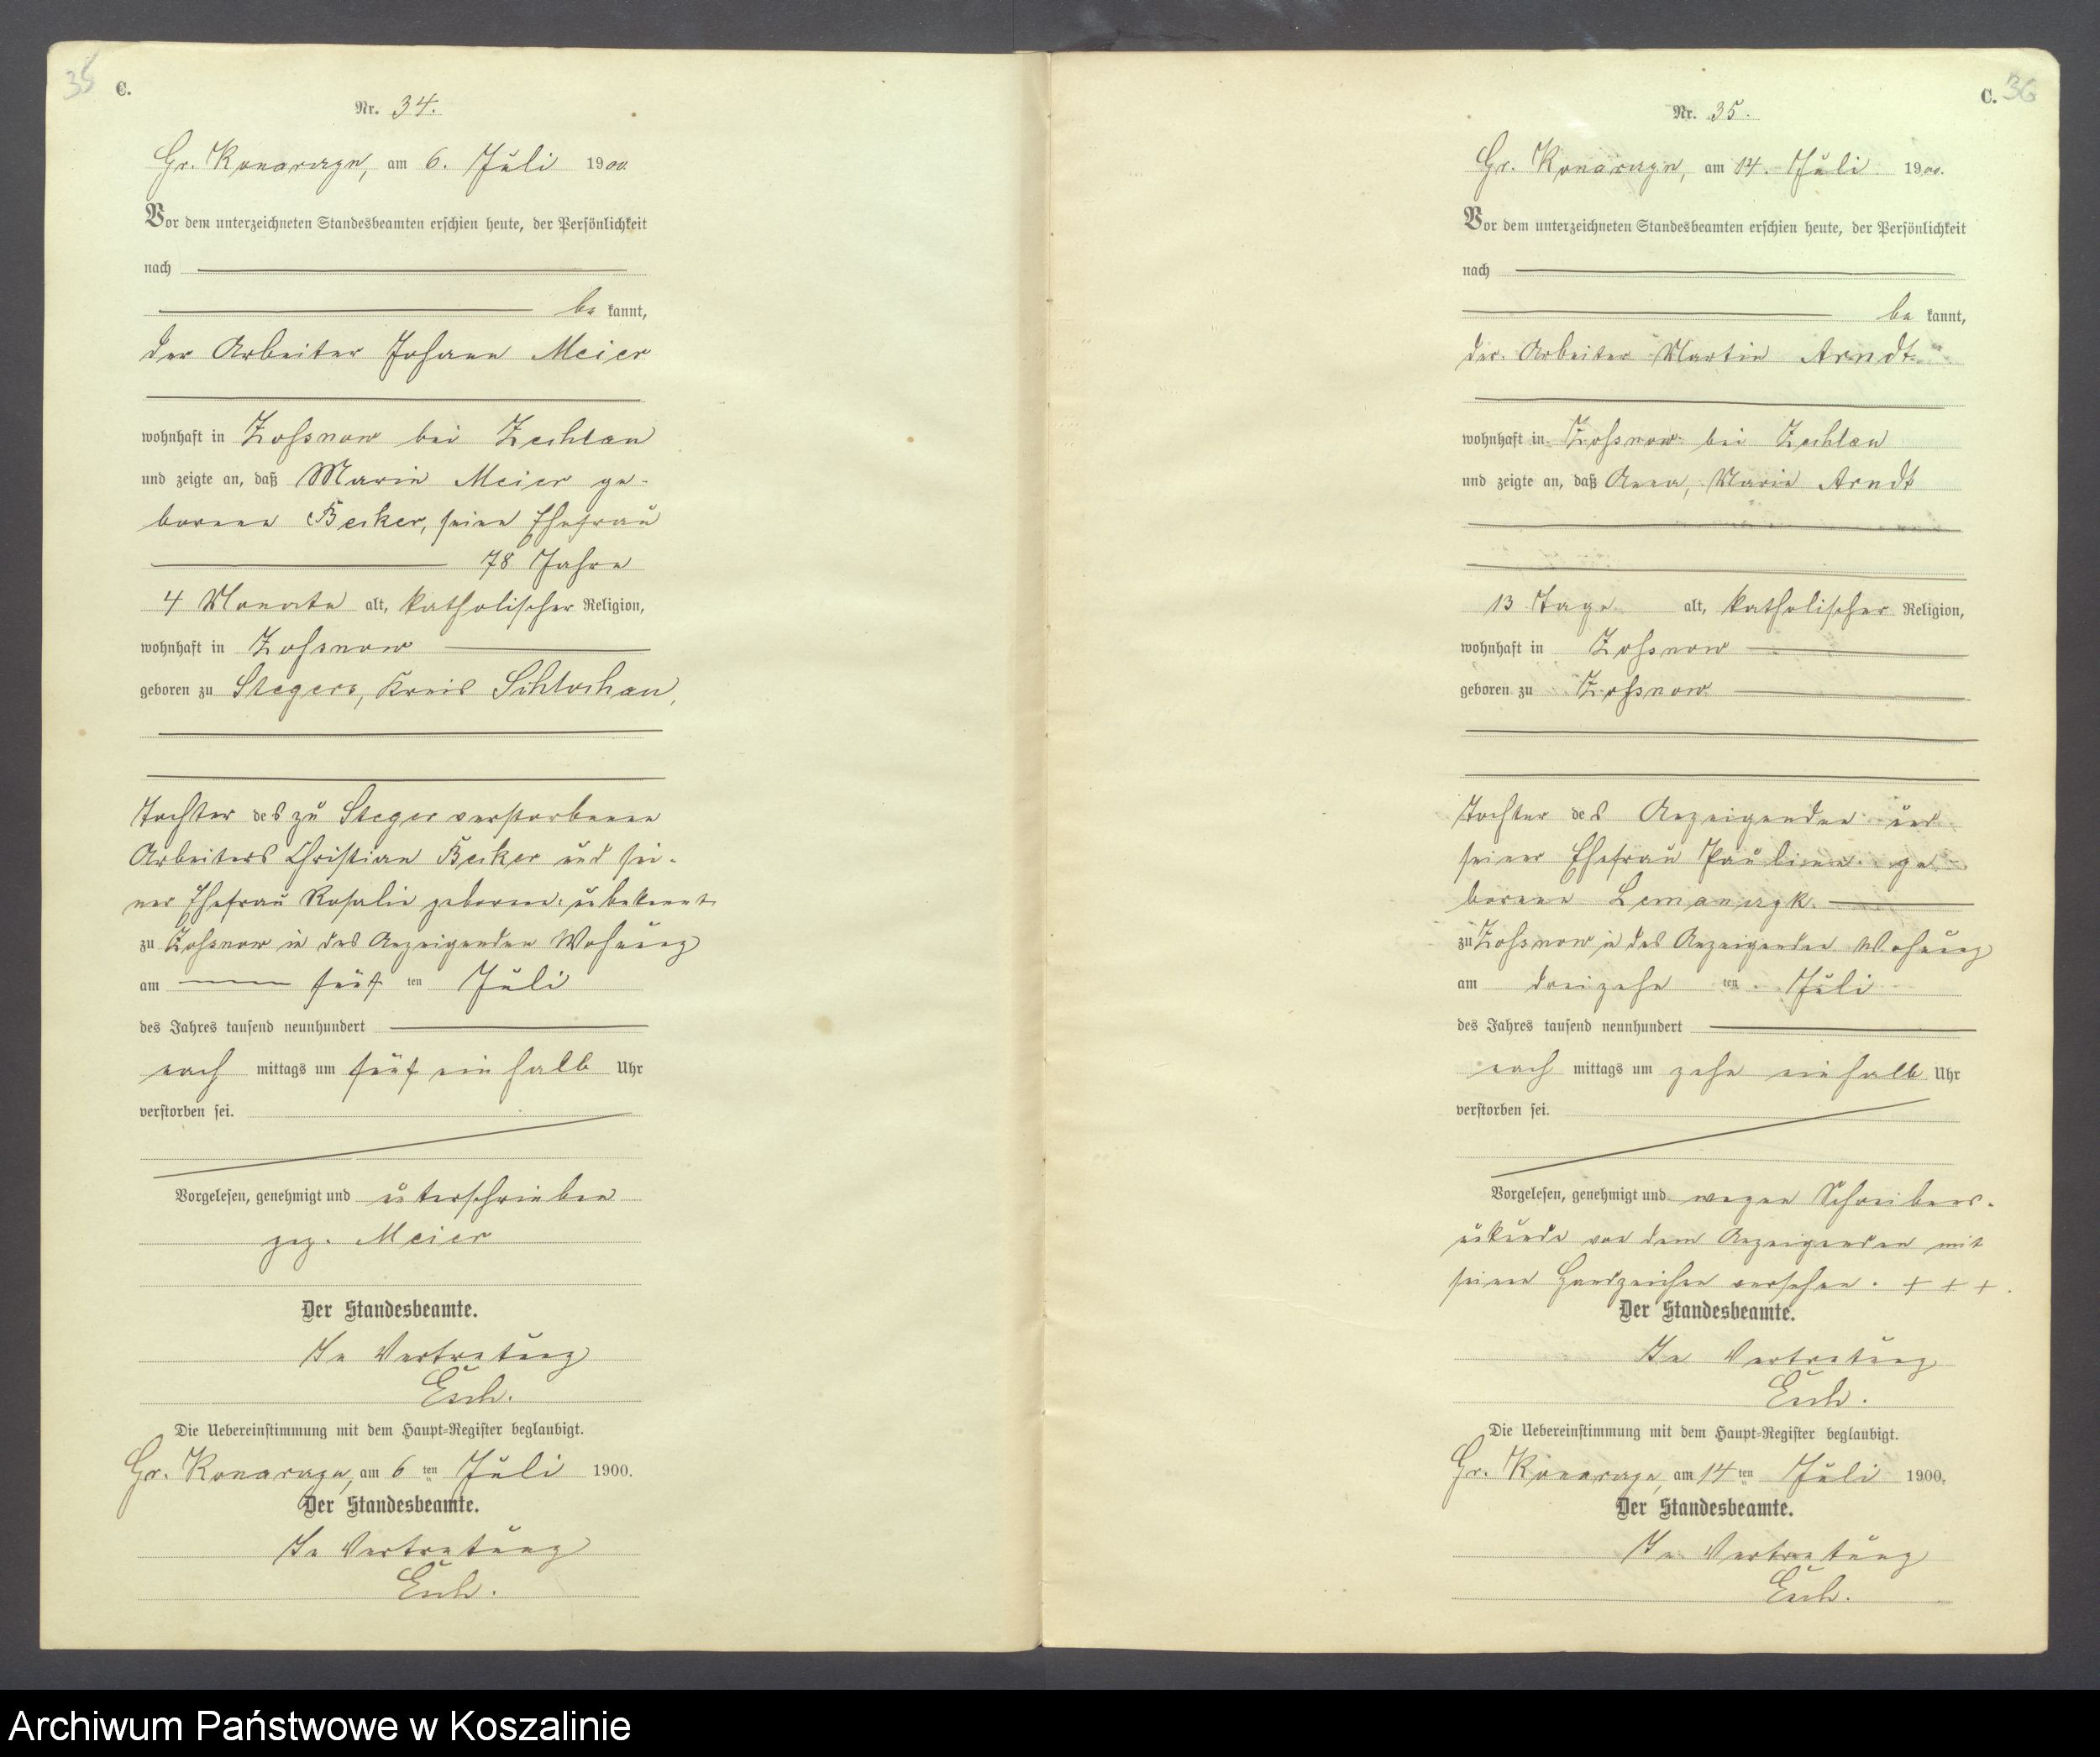 35
C.
Nr. 34.
Gr. Konarzyn, am 6. Juli 1900.
Vor dem unterzeichneten Standesbeamten erschien heute, der Persönlichkeit
nach
be kannt,
der Arbeiter Johann Meier
wohnhaft in Zossnow bei Zechlau
und zeigte an, daß Marie Meier ge-
borene Becker, seine Ehefrau
78 Jahre
4 Monate alt, katholischer Religion,
wohnhaft in Zossnow
geboren zu Stegers, Kreis Schlochau,
Tochter des zu Steger verstorbenen
Arbeiters Christian Becker und sei-
ner Ehefrau Rosalie geborene: unbekannt
zu Zossnow in des Anzeigenden Wohnung
am fünf ten Juli
des Jahres tausend neunhundert
nach mittags um fünf ein halb Uhr
verstorben sei.
Vorgelesen, genehmigt und unterschrieben
gez. Meier
Der Standesbeamte.
In Vertretung
Esch.
Die Uebereinstimmung mit dem Haupt-Register beglaubigt.
Gr. Konarzyn, am 6 ten Juli 1900.
Der Standesbeamte.
In Vertretung
Esch.
C. 36
Nr. 35.
Gr. Konarzyn, am 14. Juli 1900.
Vor dem unterzeichneten Standesbeamten erschien heute, der Persönlichkeit
nach
be kannt,
der Arbeiter Martin Arndt
wohnhaft in Zossnow bei Zechlau
und zeigte an, daß Anna, Marie Arndt
13 Tage alt, katholischer Religion,
wohnhaft in Zossnow
geboren zu Zossnow
Tochter des Anzeigenden und
seiner Ehefrau Pauline ge
borene Lemanczyk
zu Zossnow in des Anzeigenden Wohnung
am dreizehn ten Juli
des Jahres tausend neunhundert
nach mittags um zehn einhalb Uhr
verstorben sei.
Vorgelesen, genehmigt und wegen Schreibens-
unkunde von dem Anzeigenden mit
seinen Handzeichen versehen. + + +.
Der Standesbeamte.
In Vertretung
Esch.
Die Uebereinstimmung mit dem Haupt-Register beglaubigt.
Gr. Konarzyn, am 14 ten Juli 1900.
Der Standesbeamte.
In Vertretung
Esch.
Archiwum Państwowe w Koszalinie